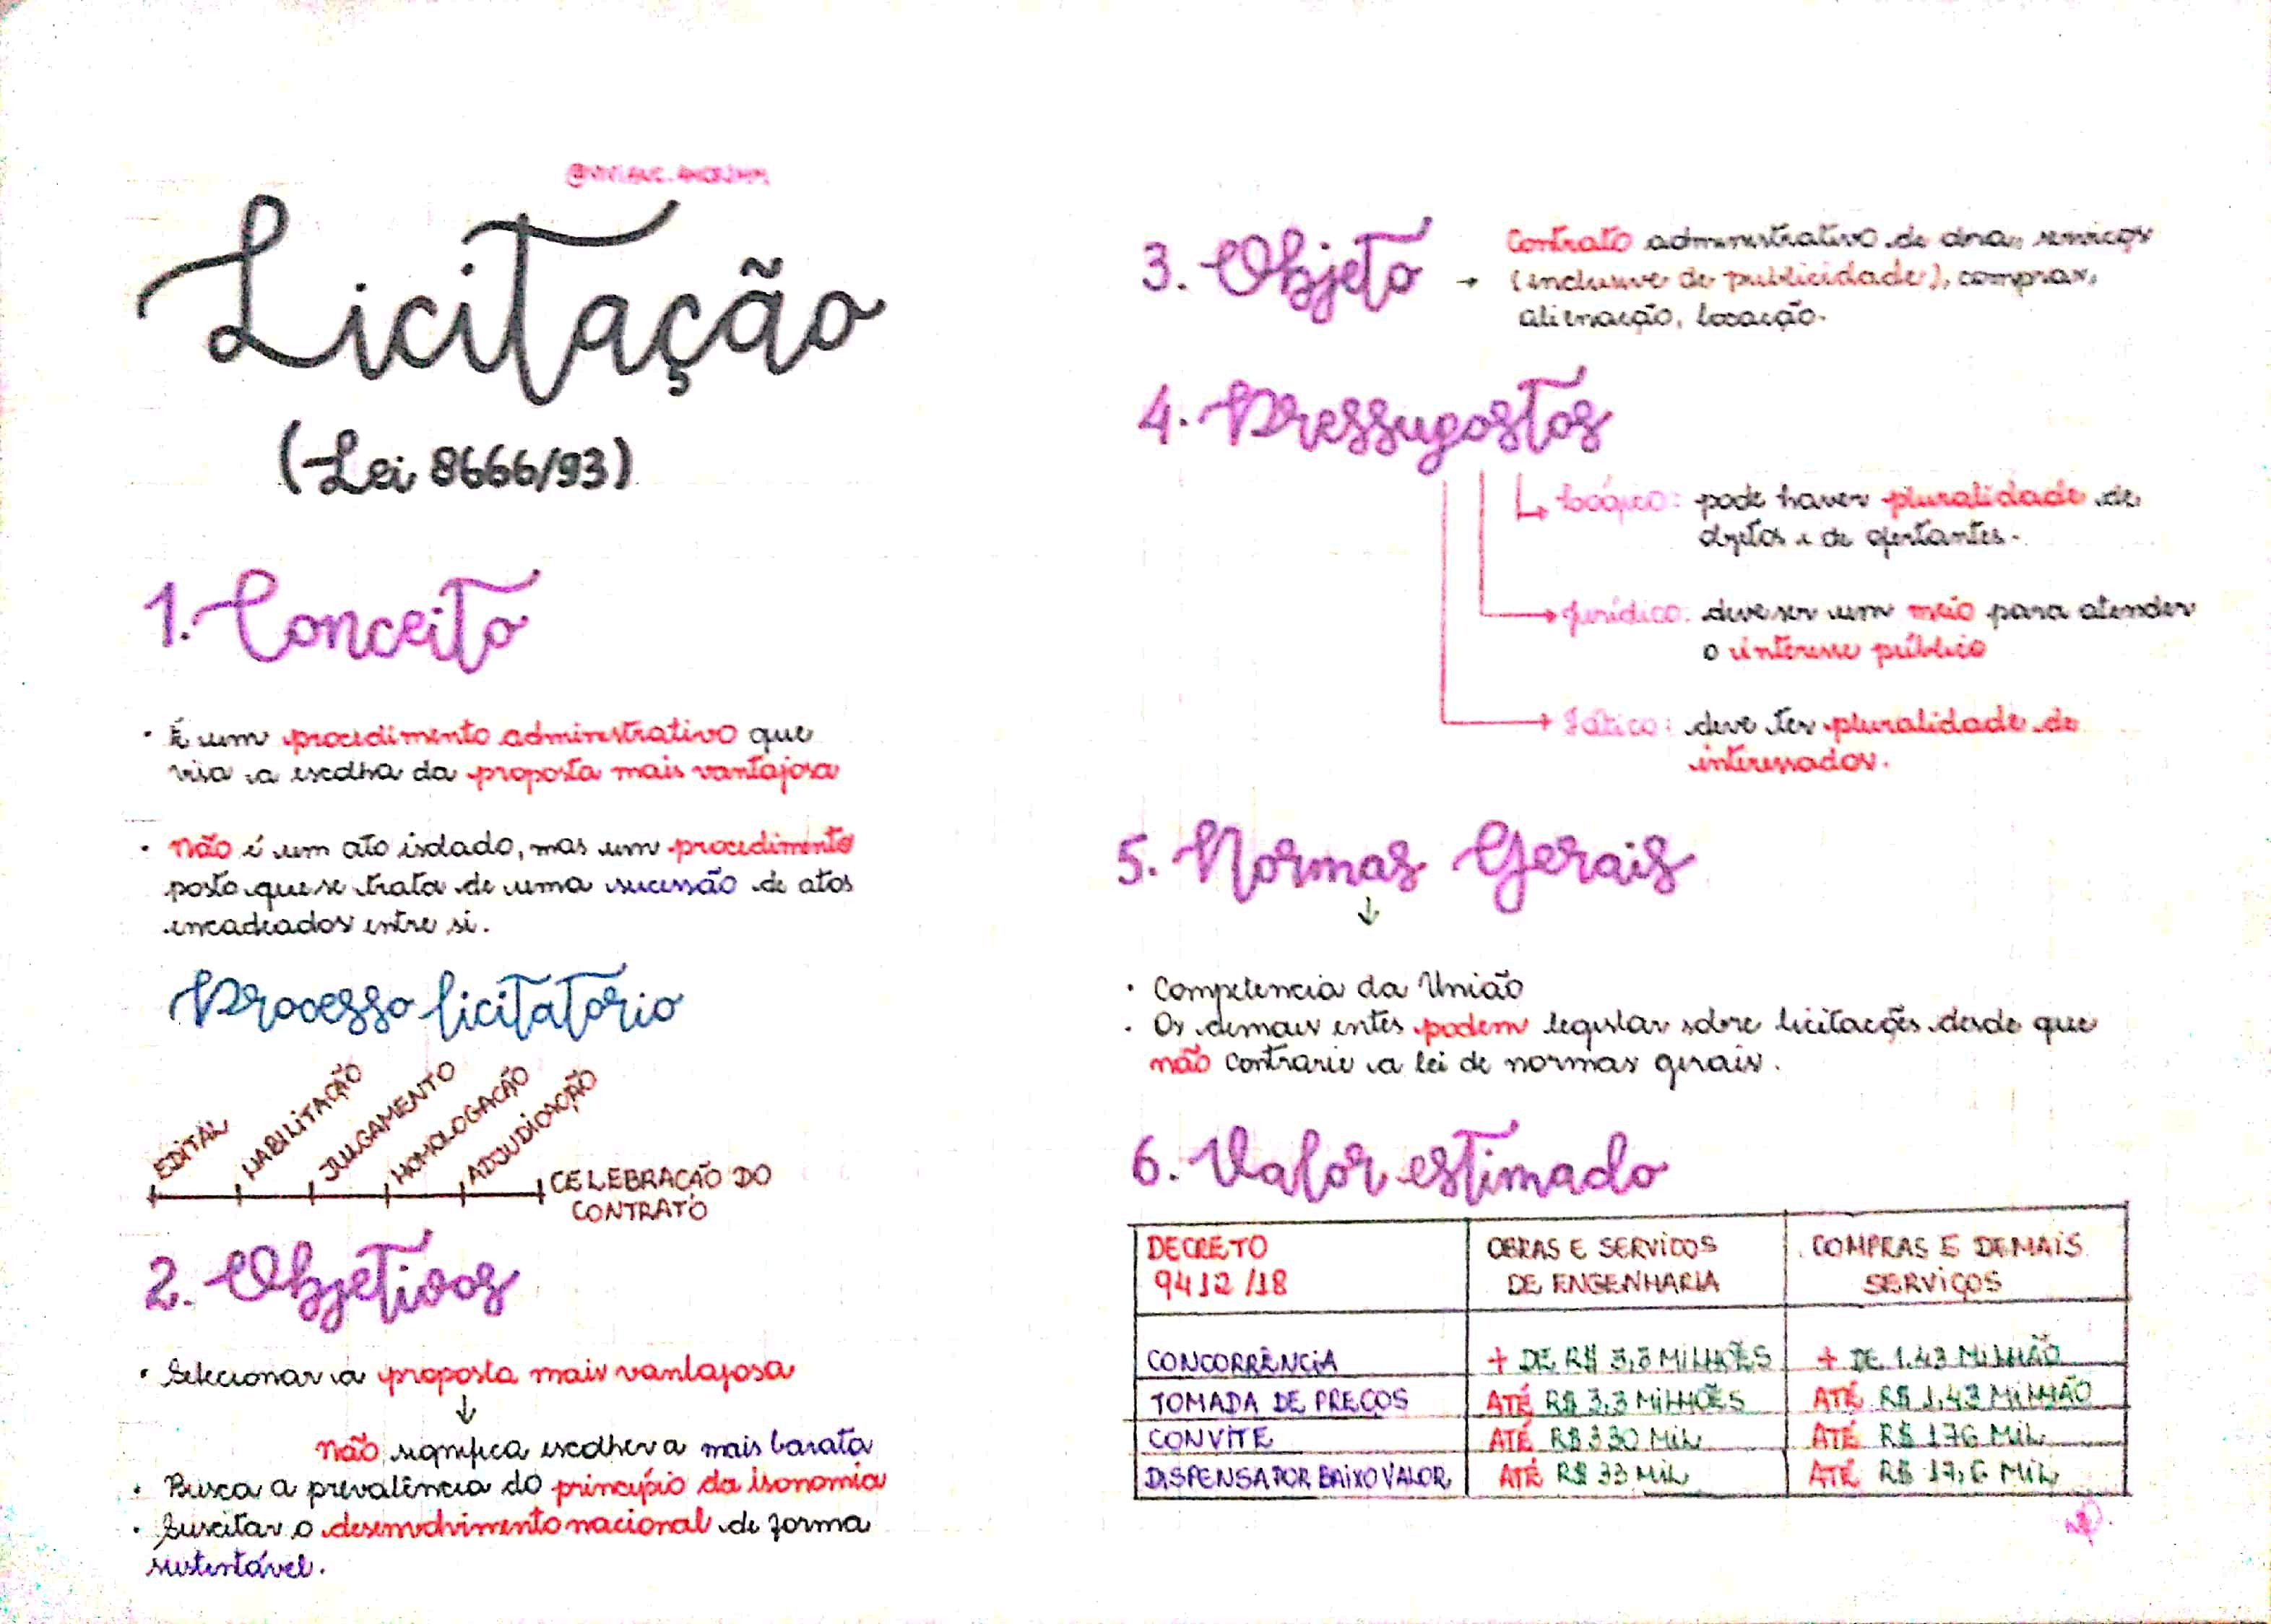 Licitação
(Lei 8666/93)
1. Conceito
• É um procedimento administrativo que
visa a escolha da proposta mais vantajosa
• Não é um ato isolado, mas um procedimento
posto que se trata de uma sucessão de atos
encadeados entre si.
Processo licitatório
EDITAL
HABILITAÇÃO
JULGAMENTO
HOMOLOGAÇÃO
ADJUDICAÇÃO
CELEBRAÇÃO DO
CONTRATO
2. Objetivos
• Selecionar a proposta mais vantajosa
↓
não significa escolher a mais barata
• Busca a prevalência do princípio da isonomia
• Suscitar o desenvolvimento nacional de forma
sustentável.
3. Objeto → Contrato administrativo de obra, serviços
(inclusive de publicidade), compras,
alienação, locação.
4. Pressupostos
Lógico: pode haver pluralidade de
objetos e de ofertantes.
Jurídico: deve ser um meio para atender
o interesse público
Fático: deve ter pluralidade de
interessados.
5. Normas Gerais
↓
• Competencia da União
• Os demais entes podem legislar sobre licitações desde que
não contrarie a lei de normas gerais.
6. Valor estimado
DECRETO 9412/18 OBRAS E SERVIÇOS DE ENGENHARIA COMPRAS E DEMAIS SERVIÇOS
CONCORRÊNCIA + DE R$ 3,3 MILHÕES + DE 1.43 MILHÃO
TOMADA DE PREÇOS ATÉ R$ 3,3 MILHÕES ATÉ R$ 1,43 MILHÃO
CONVITE ATÉ R$ 330 MIL ATÉ R$ 176 MIL
DISPENSA POR BAIXO VALOR ATÉ R$ 33 MIL ATÉ R$ 17,6 MIL